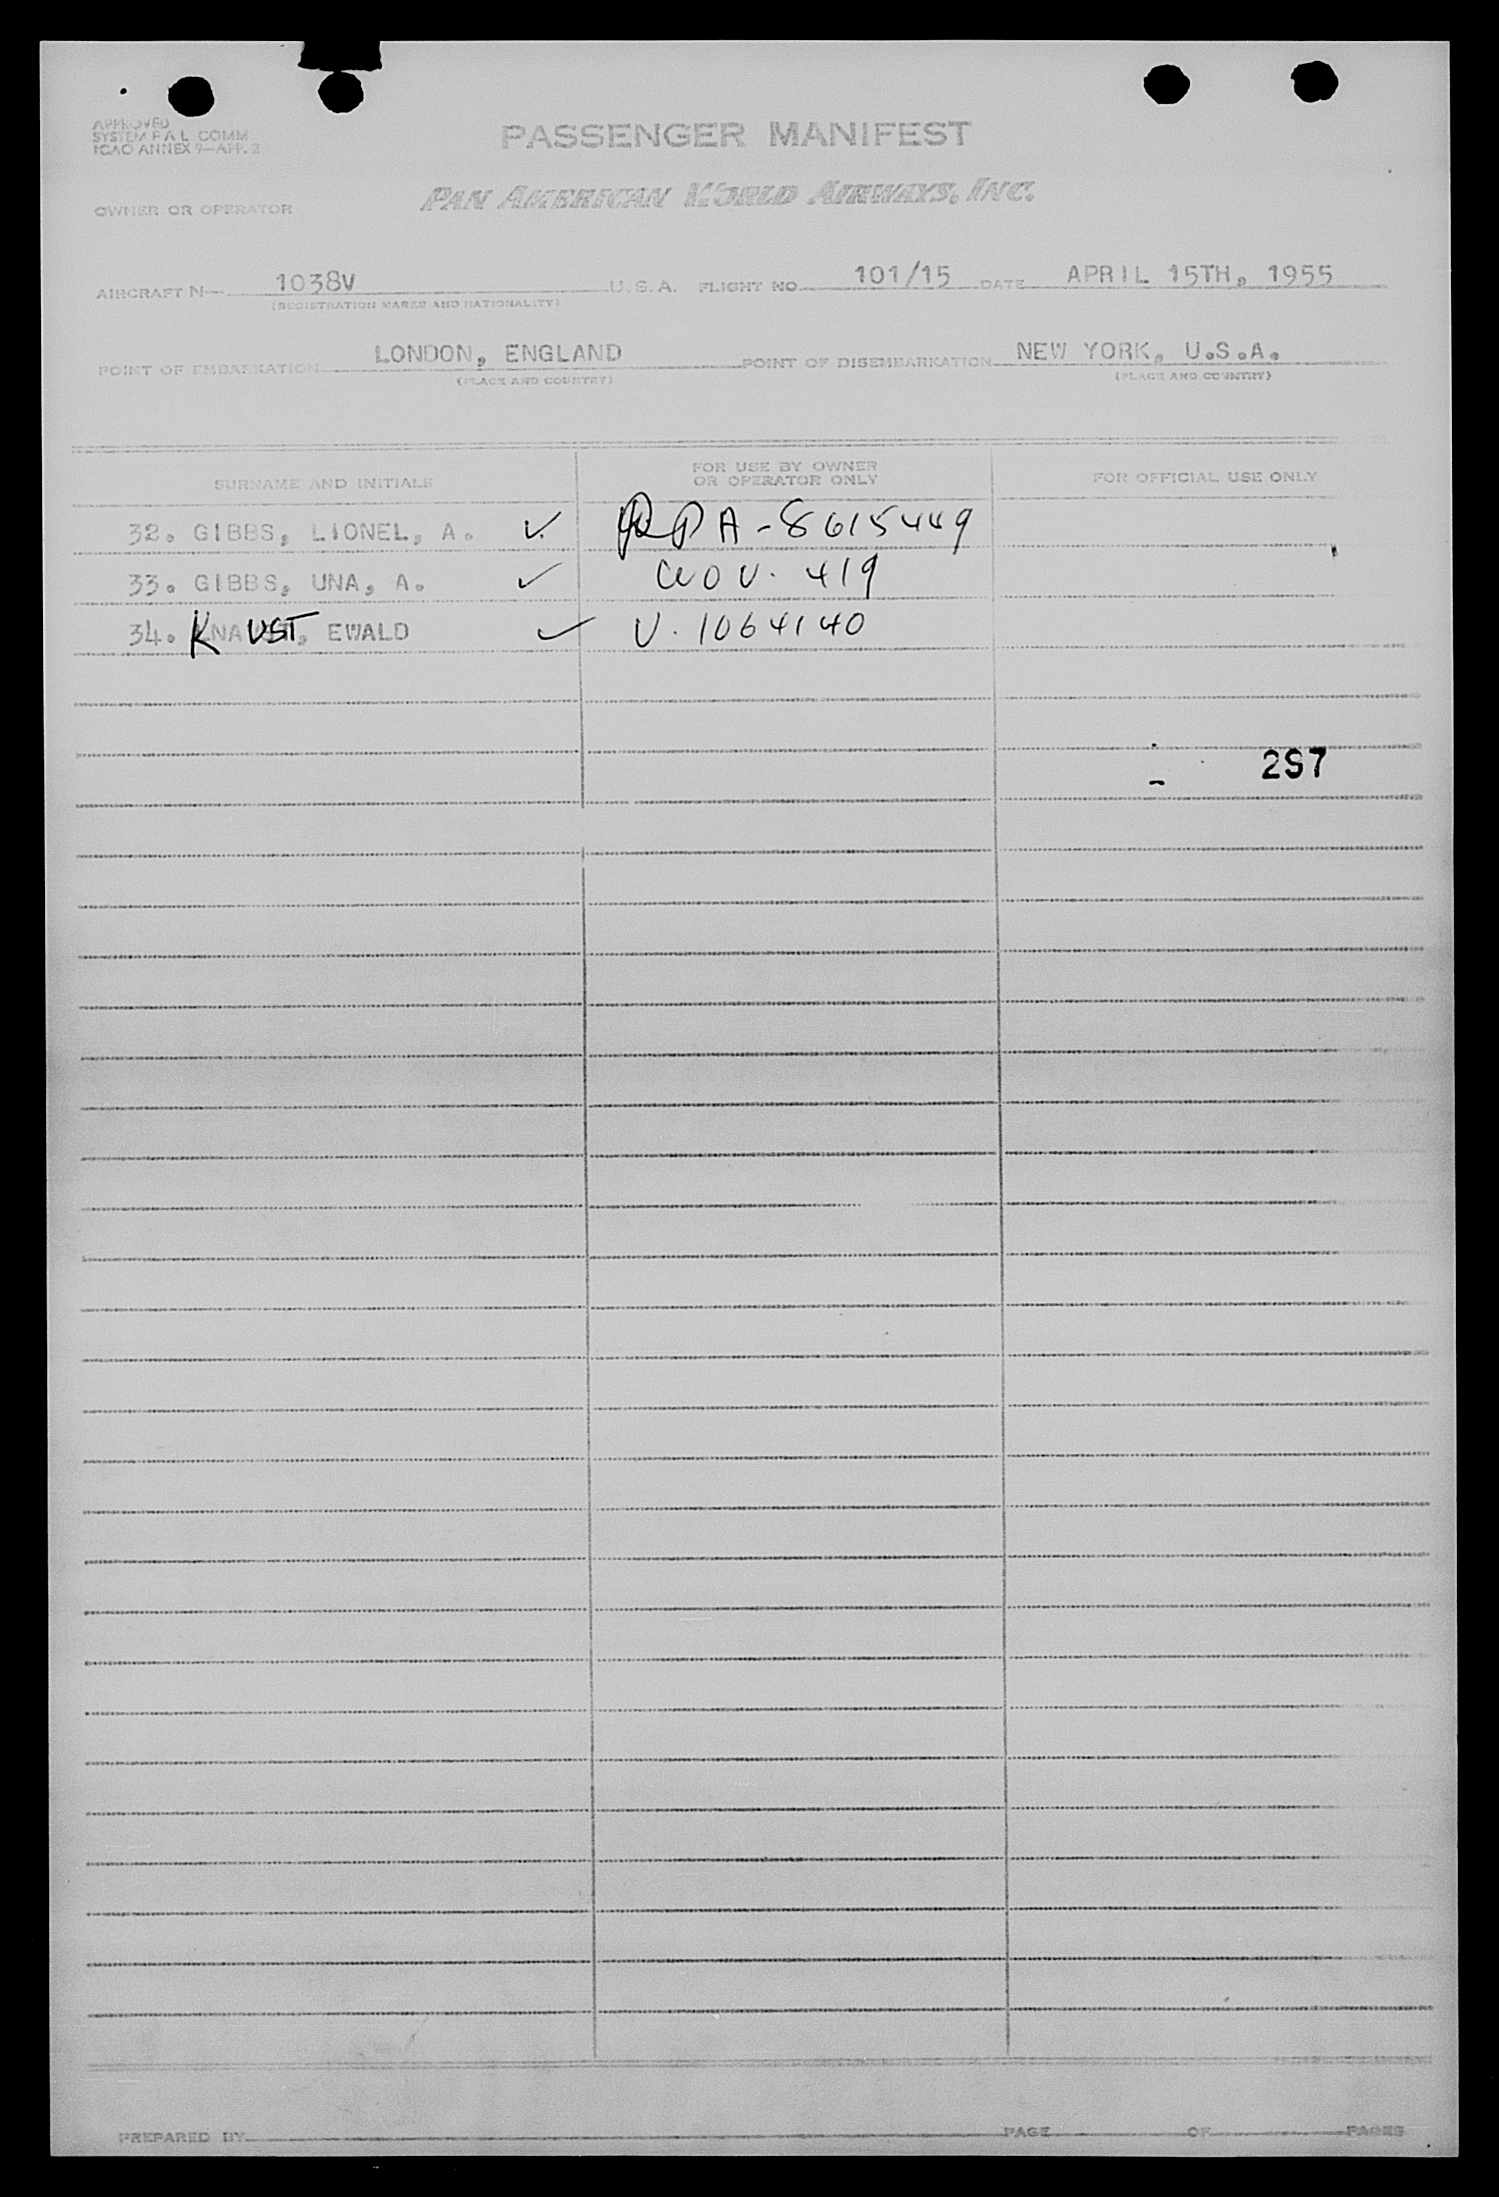 APPROVED
SYSTEM P.A.L. COMM
ICAO ANNEX 9—APP. 2
PASSENGER MANIFEST
OWNER OR OPERATOR PAN AMERICAN WORLD AIRWAYS, INC.
AIRCRAFT N— 1038V U.S.A. FLIGHT NO. 101/15 DATE APRIL 15TH, 1955
(REGISTRATION MARKS AND NATIONALITY)
POINT OF EMBARKATION LONDON, ENGLAND POINT OF DISEMBARKATION NEW YORK, U.S.A.
(PLACE AND COUNTRY) (PLACE AND COUNTRY)
SURNAME AND INITIALS FOR USE BY OWNER OR OPERATOR ONLY FOR OFFICIAL USE ONLY
32. GIBBS, LIONEL, A. ✓ A-8615449
33. GIBBS, UNA, A. ✓ 419
34. KNAUST, EWALD ✓ V. 1064140
297
PREPARED BY PAGE OF PAGES